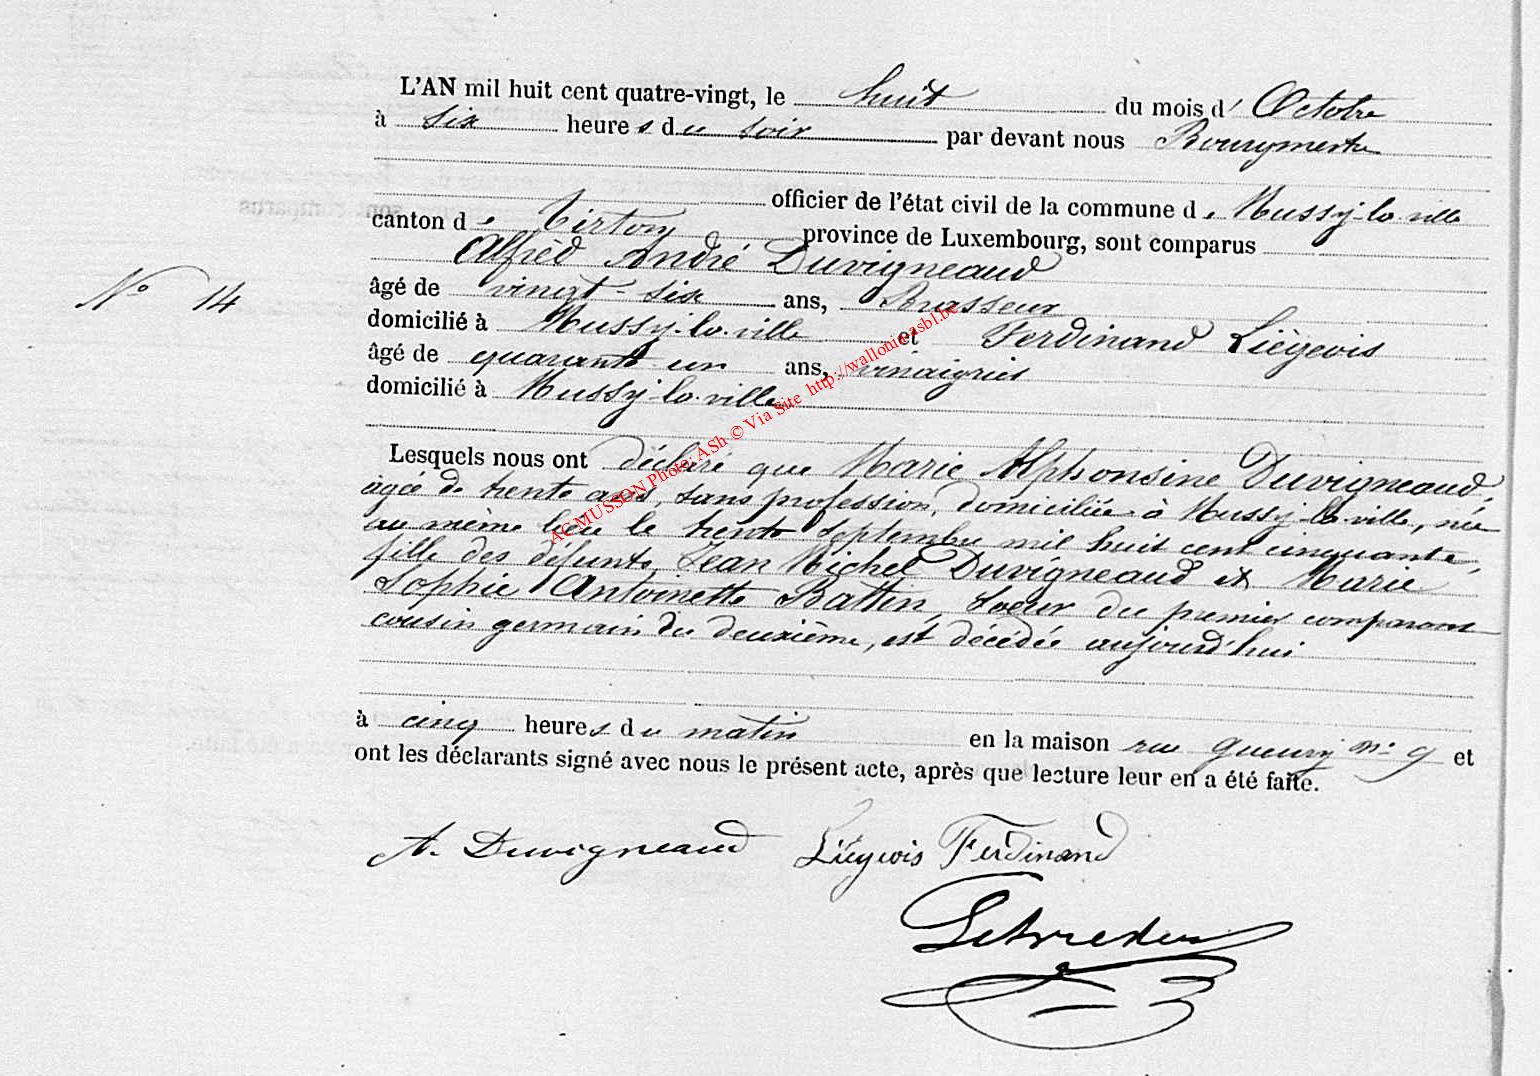 L'AN mil huit cent quatre-vingt, le huit du mois d' Octobre
à six heures du soir par devant nous Bourgmestre
officier de l'état civil de la commune de Mussy-la-ville
canton de Virton province de Luxembourg, sont comparus
Alfred André Duvigneaud
âgé de vingt-six ans, Brasseur
domicilié à Mussy-la-ville et Ferdinand Liégeois
N° 14
âgé de quarante un ans, vinaigrier
domicilié à Mussy-la-ville
AC MUSSON Photo: ASh © Via Site http://wallonia-asbl.be
Lesquels nous ont déclaré que Marie Alphonsine Duvigneaud,
âgée de trente ans, sans profession, domiciliée à Mussy-la-ville, née
au même lieu le trente septembre mil huit cent cinquante,
fille des défunts Jean Michel Duvigneaud et Marie
Sophie Antoinette Battin, soeur du premier comparant
cousin germain du deuxième, est décédée aujourd'hui
à cinq heures du matin en la maison rue n° 9 et
ont les déclarants signé avec nous le présent acte, après que lecture leur en a été faite.
A. Duvigneaud Liégeois Ferdinand